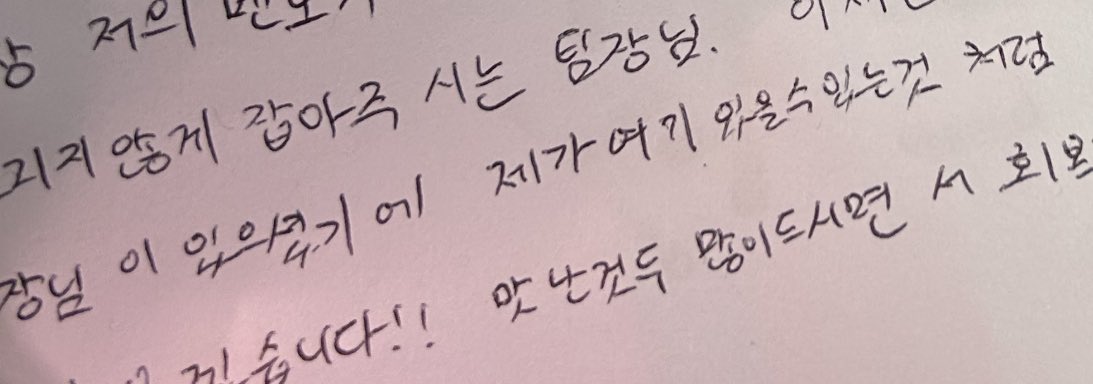 상 저의 멘토
지지 않게 잡아주 시는 팀장님.
장님 이 있으셨기 에 제가 여기 있을수 있는것 처럼
습니다!! 맛난것두 많이드시면 서 회복